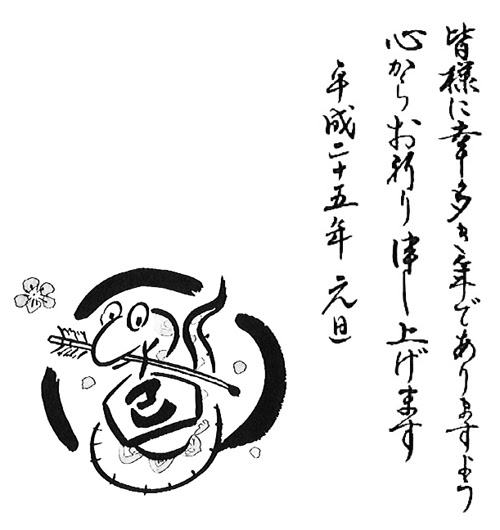 皆様に幸多き年でありますよう
心からお祈り申し上げます
平成二十五年 元旦
巳